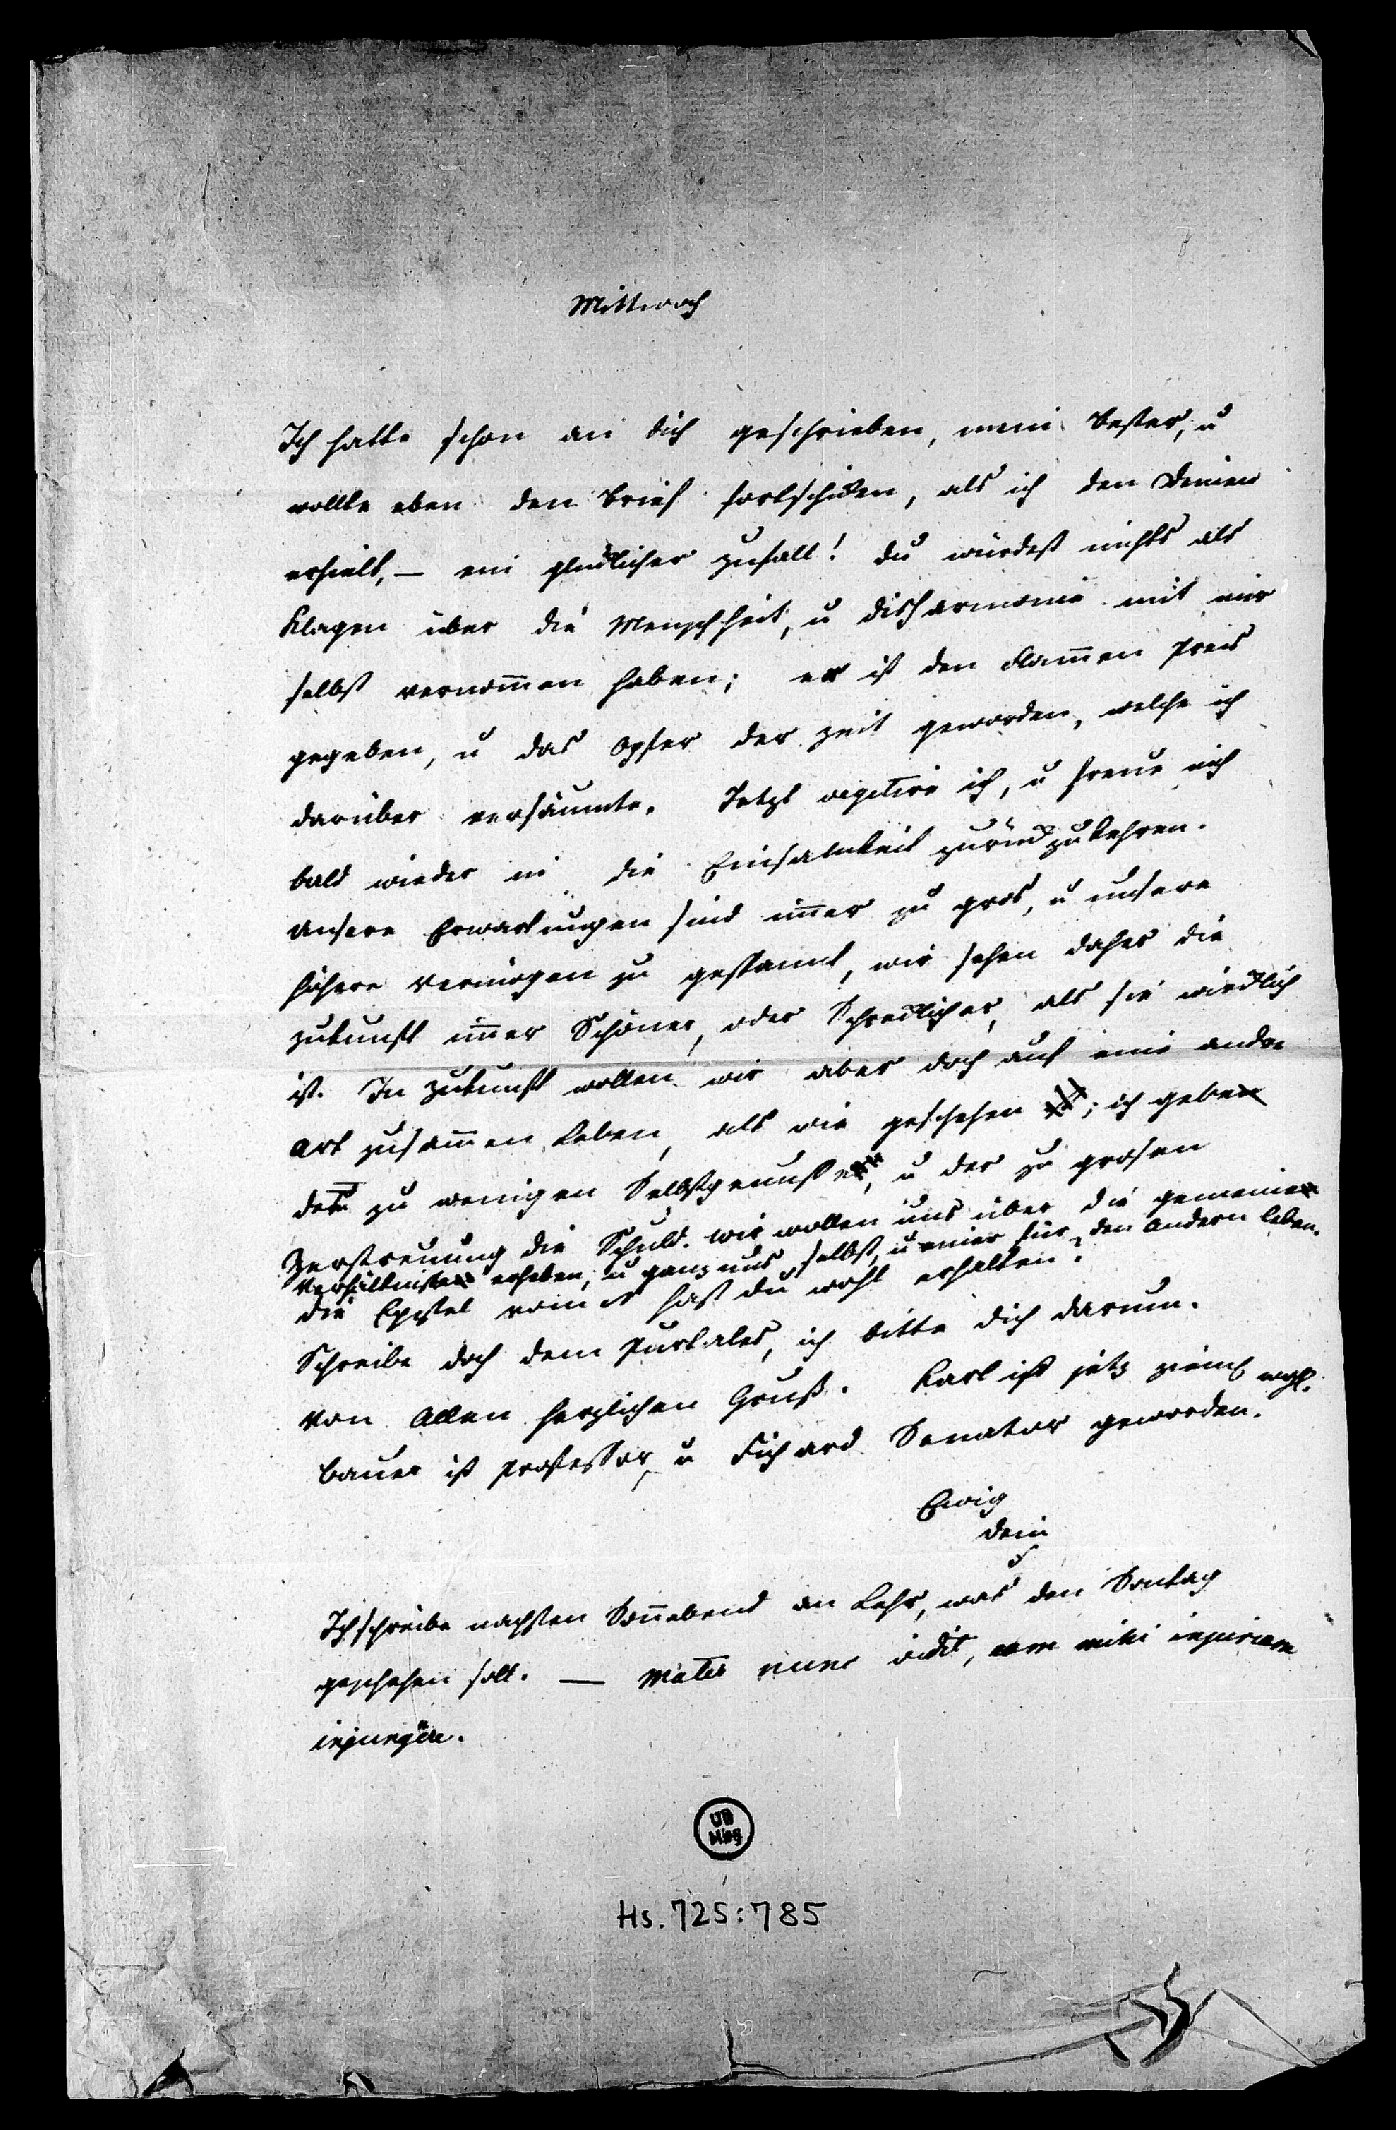 Mittwoch
Ich hatte schon an dich geschrieben, mein Bester, u
wollte eben den Brief fortschicken, als ich den Deinen
erhielt, — ein glücklicher Zufall! du würdest nichts als
Klagen über die Menschheit, u disharmonie mit mir
selbst vernom̅en haben; er ist den Flam̅en preis
gegeben, u das Opfer der Zeit geworden, welche ich
darüber versäumte. Jetzt vegetire ich, u freue mich
bald wieder in die Einsamkeit zurückzukehren.
Unsere Erwartungen sind im̅er zu gros, u unsere
höhere Vermögen zu gespannt, wir sehen daher die
Zukunft im̅er Schöner, oder Schrecklicher, als sie wircklich
ist. In Zukunft wollen wir aber doch auf eine andre
Art zusam̅en leben, als wie geschehen ist; ich gebe
dem zu wenigen Selbstgenuße, u der zu grosen
Zerstreuung die Schuld. wir wollen uns über die gemeine
Verhältniße erheben, u ganz uns selbst, u einer für den Andern leben.
die Epistel von hast du wohl erhalten?
Schreibe doch dem Purtales, ich bitte dich darum.
Von Allen herzlichen Gruß. Karl ist jetz zieml wohl.
Bauer ist Professor, u Fichard Senator geworden.
Ewig
dein
Ich schreibe nachsten Son̅abend an Lehr, was den Sontag
geschehen soll. — Mater nunc vidit, eam mihi injuriam
injungere.
UB
Mbg
Hs. 725:785